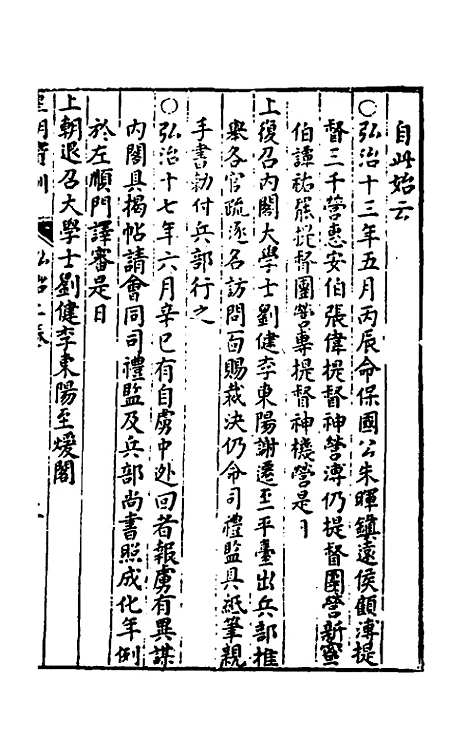 自此始云
○弘治十三年五月丙辰命保國公朱暉鎮遠侯顧溥提
督三千營惠安伯張偉提督神營溥仍提督團營新寧
伯譚祐罷提督團營專提督神機營是日
上復召內閣大學士劉健李東陽謝遷至平臺出兵部推
舉各官疏逐名訪問面賜裁決仍命司禮監具紙筆親
手書勑付兵部行之
○弘治十七年六月辛巳有自虜中迯回者報虜有異謀
內閣具揭帖請會同司禮監及兵部尚書照成化年例
於左順門譯審是日
上朝退召大學士劉健李東陽至煖閣
皇明寶訓
弘治二卷